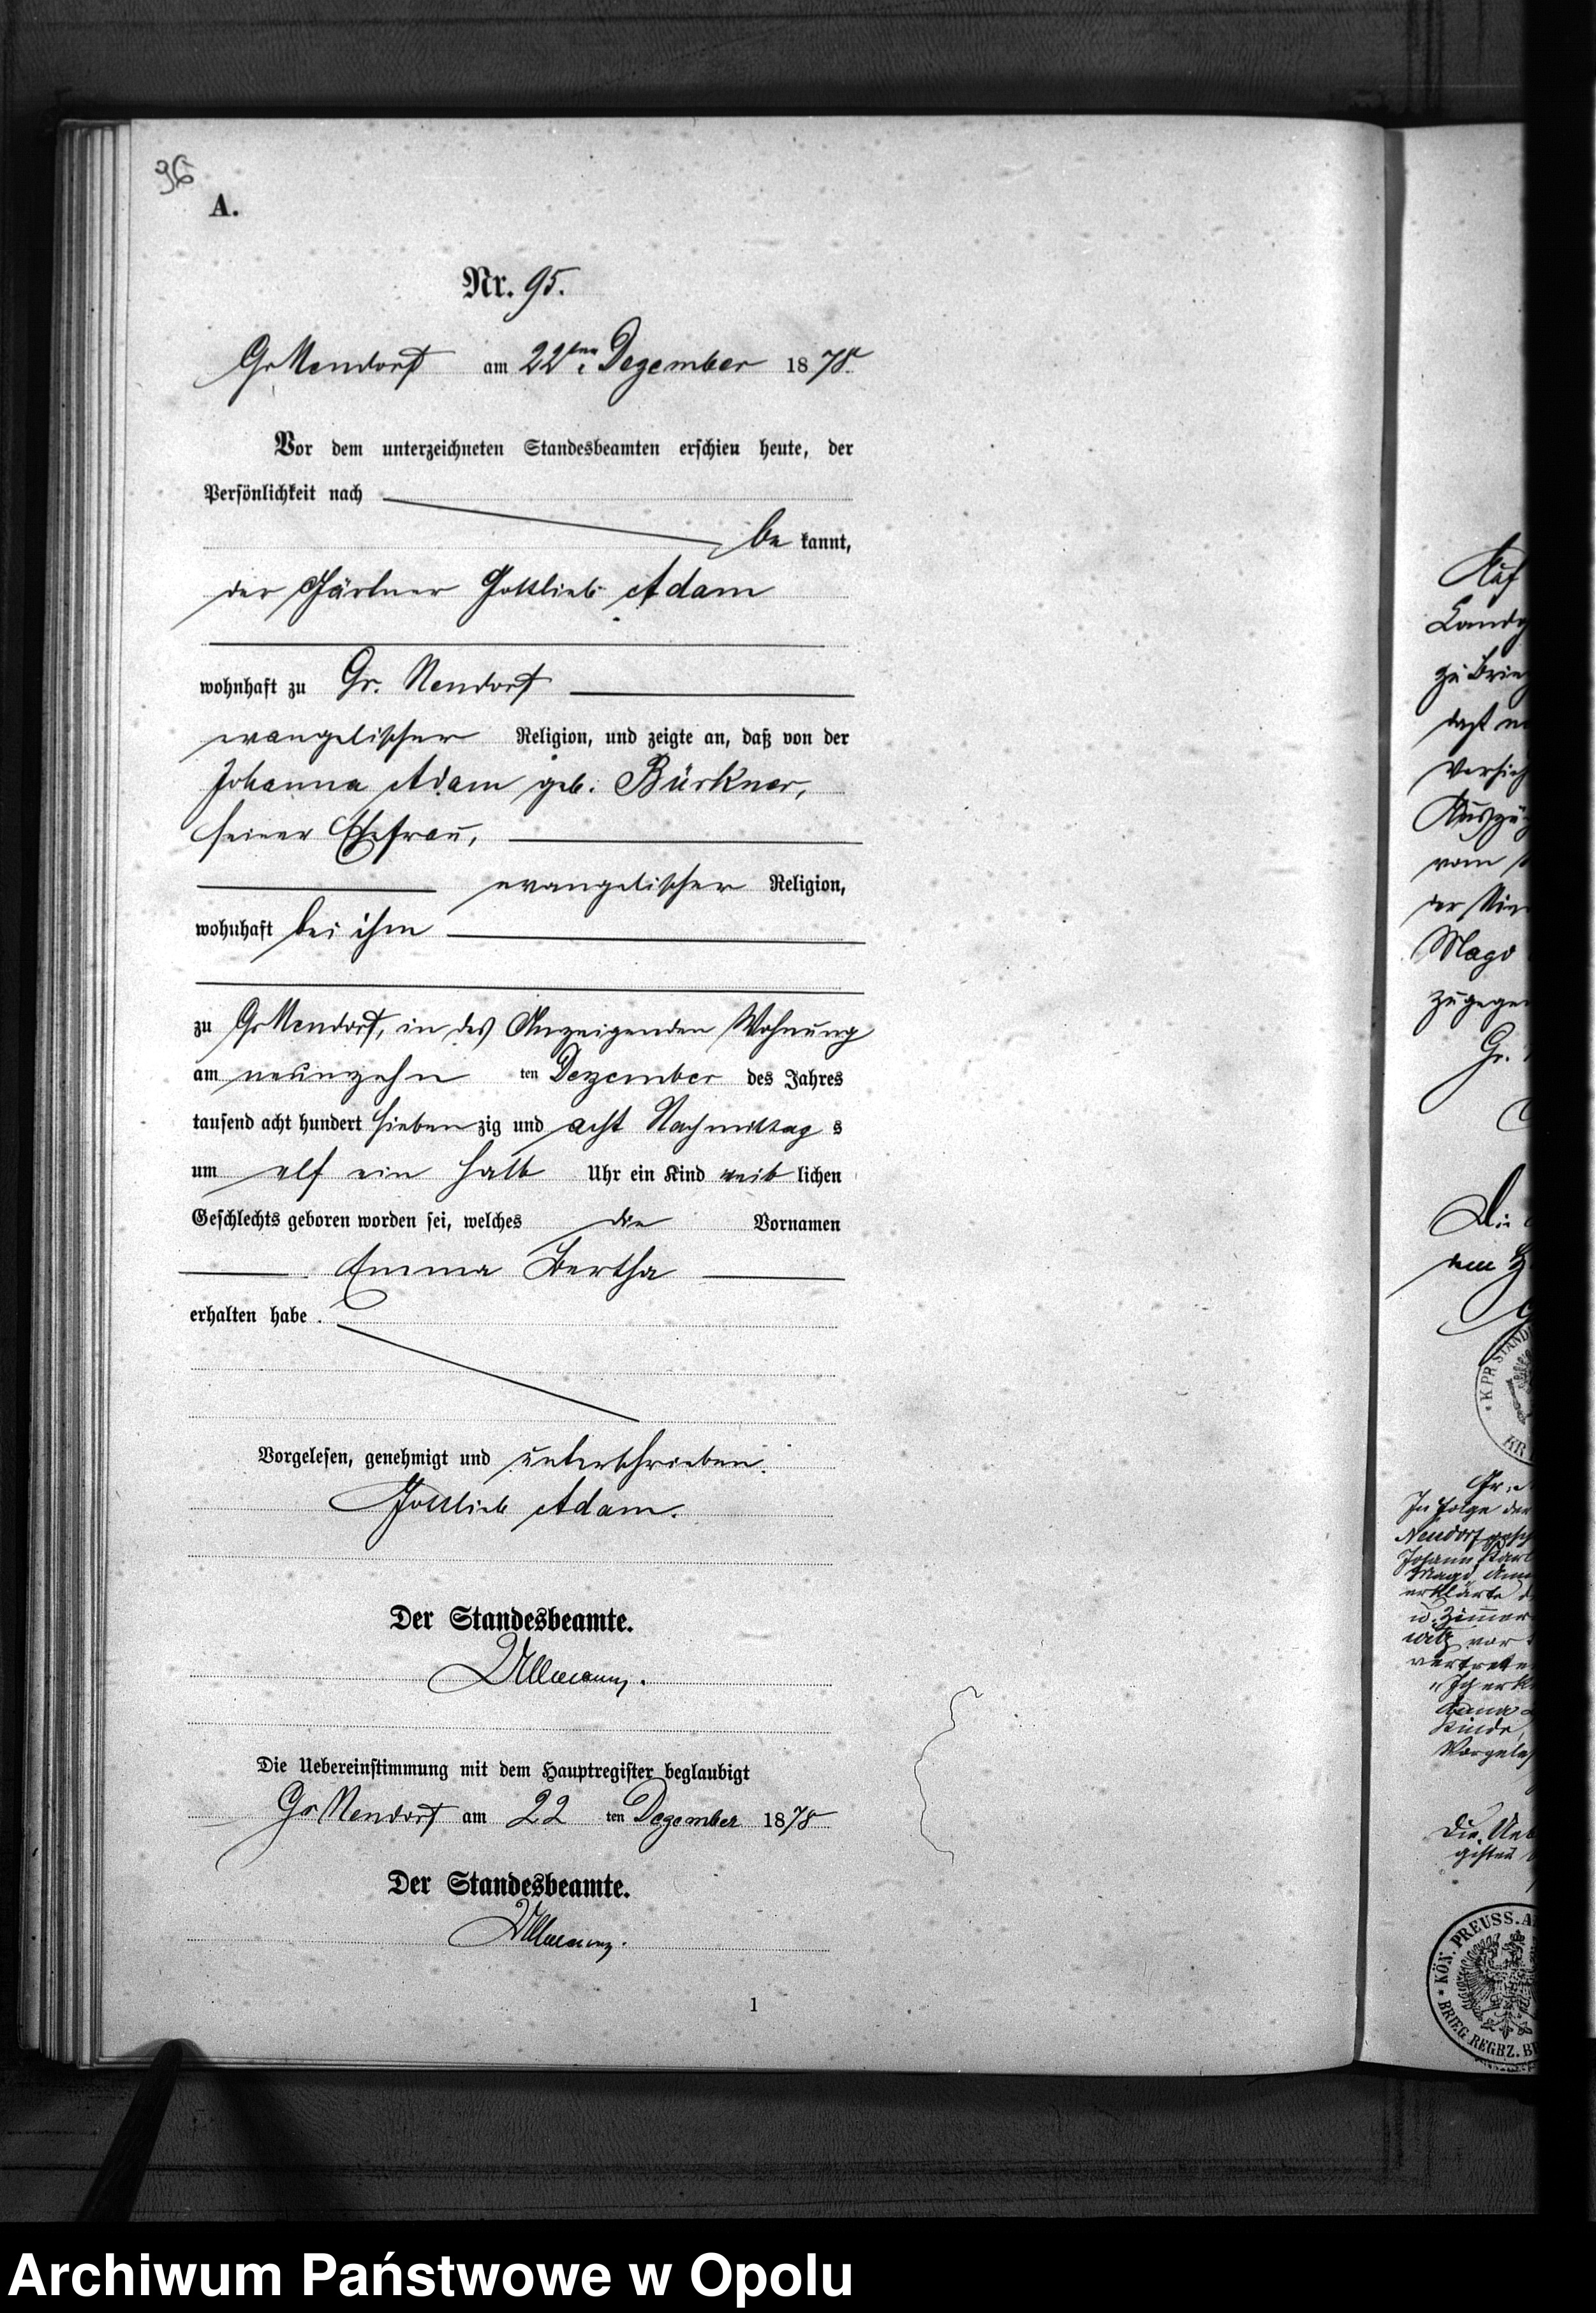 96
A.
Nr. 95.
Gr Neudorf am 22ten Dezember 1878.
Vor dem unterzeichneten Standesbeamten erschien heute, der
Persönlichkeit nach
be kannt,
der Gärtner Gottlieb Adam
wohnhaft zu Gr. Neudorf
evangelischer Religion, und zeigte an, daß von der
Johanna Adam geb. Bürkner,
seiner Ehefrau,
evangelischer Religion,
wohnhaft bei ihm
zu Gr Neudorf, in des Anzeigenden Wohnung
am neunzehn ten Dezember des Jahres
tausend acht hundert sieben zig und acht Nachmittag s
um elf ein halb Uhr ein Kind weib lichen
Geschlechts geboren worden sei, welches die Vornamen
Emma Bertha
erhalten habe.
Vorgelesen, genehmigt und unterschrieben.
Gottlieb Adam.
Der Standesbeamte.
Ullmann.
Die Uebereinstimmung mit dem Hauptregister beglaubigt
Gr Neudorf am 22 ten Dezember 1878
Der Standesbeamte.
Ullmann.
1
Auf
zu Brieg
vom
der
Mago
Gr.
Die
K PR STAND
KR
In Folge der
Neudorf
Johann Karl
Mago
erklärte
u. Zimmer
witz vor
vertrete
"Ich erk
Anna
Kinde
Vorgeles
Die Ueb
gister
KÖN. PREUSS. A
BRIEG REGBZ. B
Archiwum Państwowe w Opolu